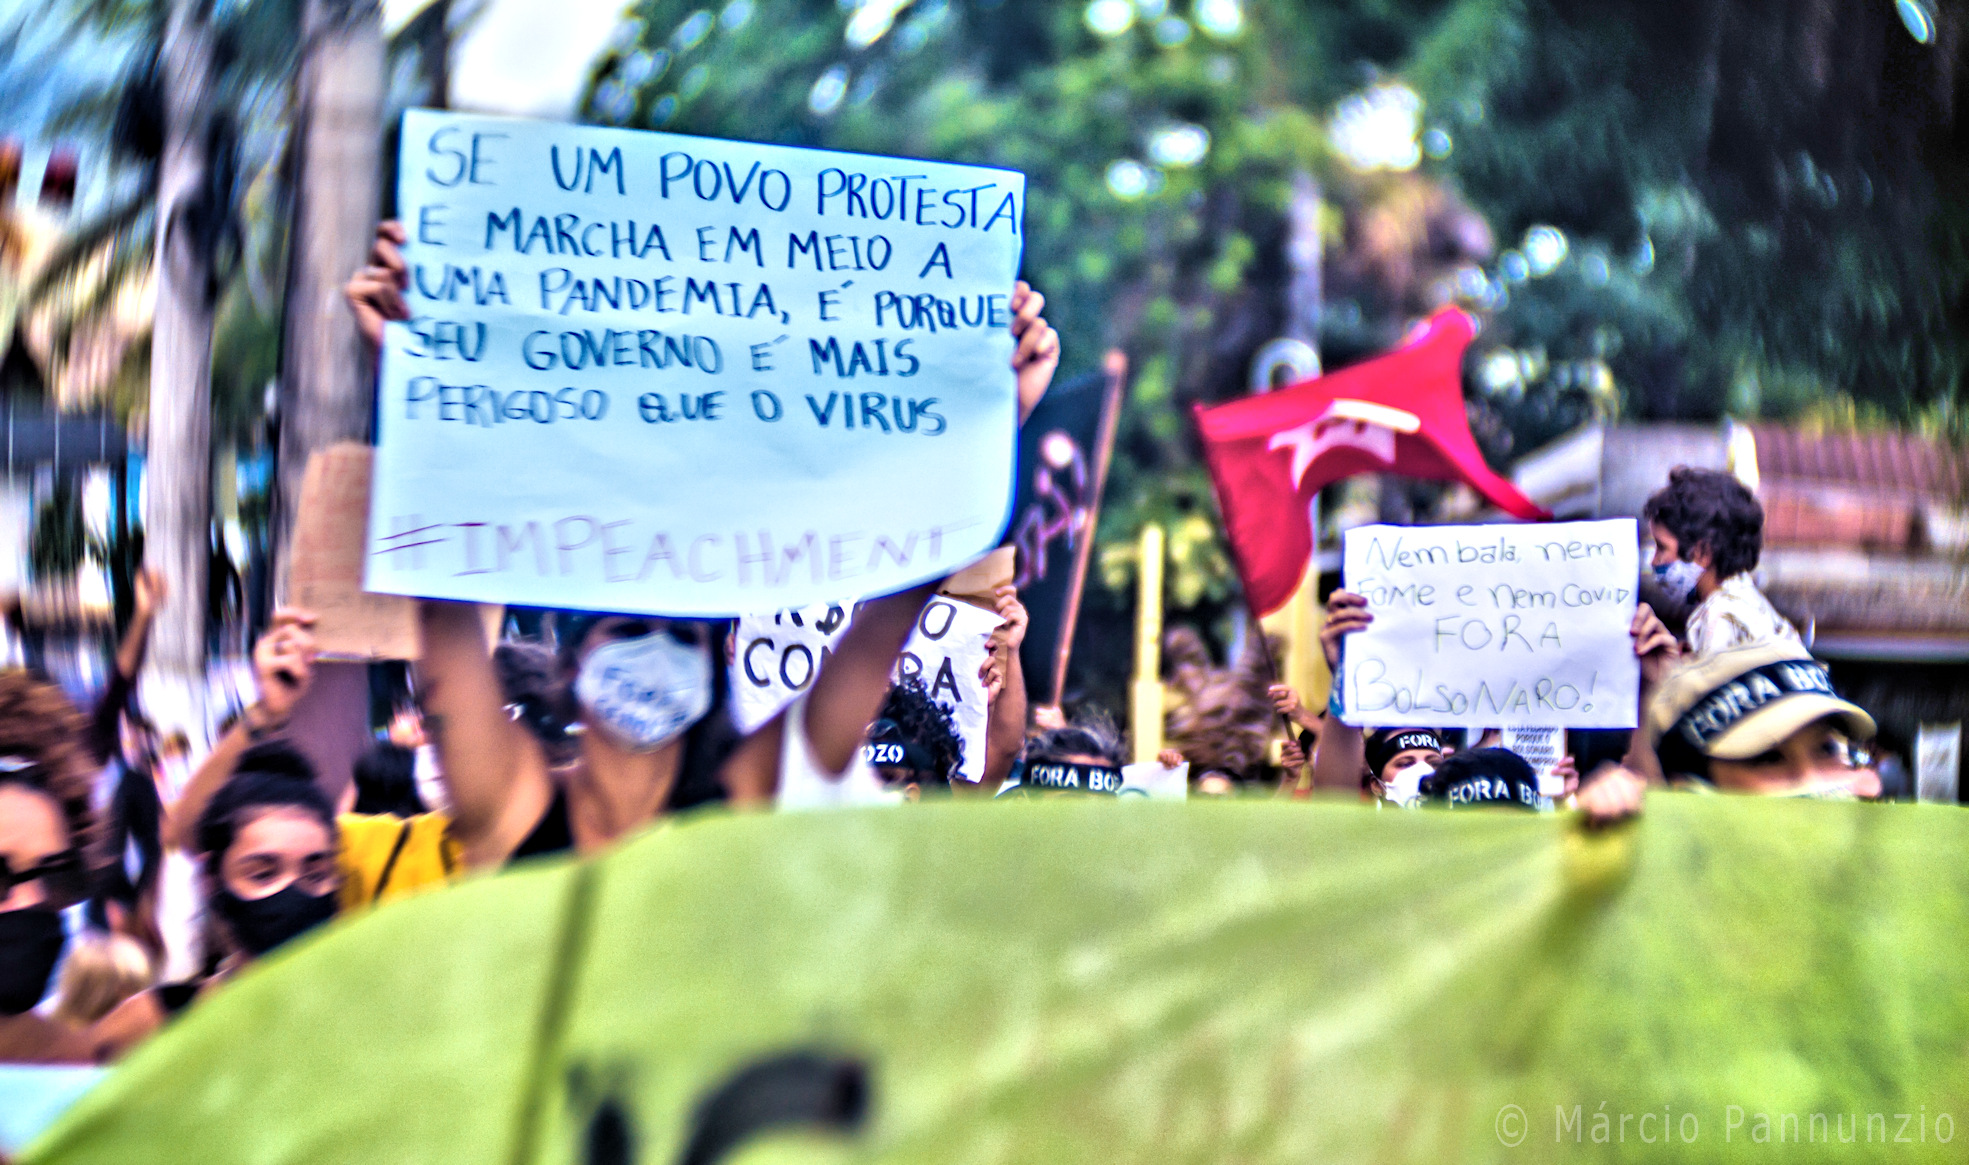 SE UM POVO PROTESTA
E MARCHA EM MEIO A
UMA PANDEMIA, É PORQUE
SEU GOVERNO É MAIS
PERIGOSO QUE O VIRUS
#IMPEACHMENT
Nem bala, nem
Fome e nem Covid
FORA
BOLSONARO!
CO RA
OZO
FORA BO
FORA
FORA BO
FORA BOZ
© Márcio Pannunzio